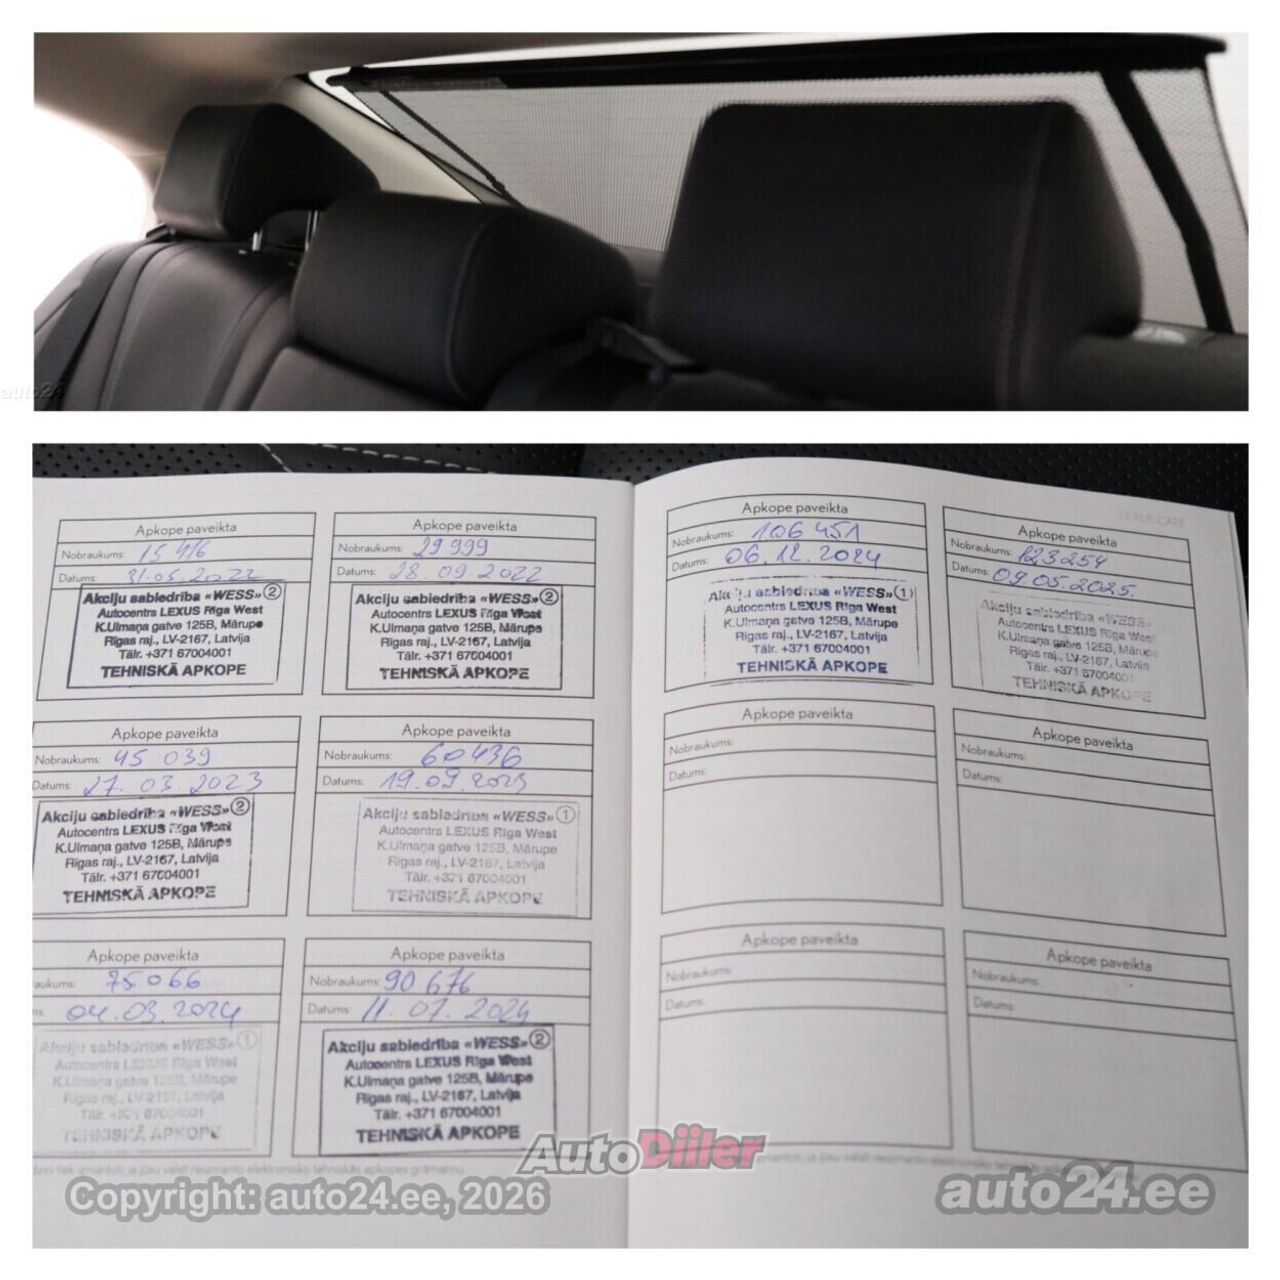 auto24
LEXUS CARE
Apkope paveikta
Nobraukums: 15 416
Datums: 31.05.2022
Akciju sabiedrība «WESS» 2
Autocentrs LEXUS Rīga West
K.Ulmaņa gatve 125B, Mārupe
Rīgas raj., LV-2167, Latvija
Tālr. +371 67004001
TEHNISKĀ APKOPE
Apkope paveikta
Nobraukums: 29 999
Datums: 28.09.2022
Akciju sabiedrība «WESS» 2
Autocentrs LEXUS Rīga West
K.Ulmaņa gatve 125B, Mārupe
Rīgas raj., LV-2167, Latvija
Tālr. +371 67004001
TEHNISKĀ APKOPE
Apkope paveikta
Nobraukums: 45 039
Datums: 27.03.2023
Akciju sabiedrība «WESS» 2
Autocentrs LEXUS Rīga West
K.Ulmaņa gatve 125B, Mārupe
Rīgas raj., LV-2167, Latvija
Tālr. +371 67004001
TEHNISKĀ APKOPE
Apkope paveikta
Nobraukums: 60436
Datums: 19.09.2023
Akciju sabiedrība «WESS» 1
Autocentrs LEXUS Rīga West
K.Ulmaņa gatve 125B, Mārupe
Rīgas raj., LV-2167, Latvija
Tālr. +371 67004001
TEHNISKĀ APKOPE
Apkope paveikta
aukums: 75 066
ms: 04.03.2024
Akciju sabiedrība «WESS» 1
Autocentrs LEXUS Rīga West
K.Ulmaņa gatve 125B, Mārupe
Rīgas raj., LV-2167, Latvija
Tālr. +371 67004001
TEHNISKĀ APKOPE
Apkope paveikta
Nobraukums: 90 676
Datums: 11.07.2024
Akciju sabiedrība «WESS» 2
Autocentrs LEXUS Rīga West
K.Ulmaņa gatve 125B, Mārupe
Rīgas raj., LV-2167, Latvija
Tālr. +371 67004001
TEHNISKĀ APKOPE
Apkope paveikta
Nobraukums: 106 451
Datums: 06.12.2024
Akciju sabiedrība «WESS» 1
Autocentrs LEXUS Rīga West
K.Ulmaņa gatve 125B, Mārupe
Rīgas raj., LV-2167, Latvija
Tālr. +371 67004001
TEHNISKĀ APKOPE
Apkope paveikta
Nobraukums: 123254
Datums: 09.05.2025.
Akciju sabiedrība «WESS»
Autocentrs LEXUS Rīga West
K.Ulmaņa gatve 125B, Mārupe
Rīgas raj., LV-2167, Latvija
Tālr. +371 67004001
TEHNISKĀ APKOPE
Apkope paveikta
Nobraukums:
Datums:
Apkope paveikta
Nobraukums:
Datums:
Apkope paveikta
Nobraukums:
Datums:
Apkope paveikta
Nobraukums:
Datums:
AutoDiiler
Copyright: auto24.ee, 2026
auto24.ee